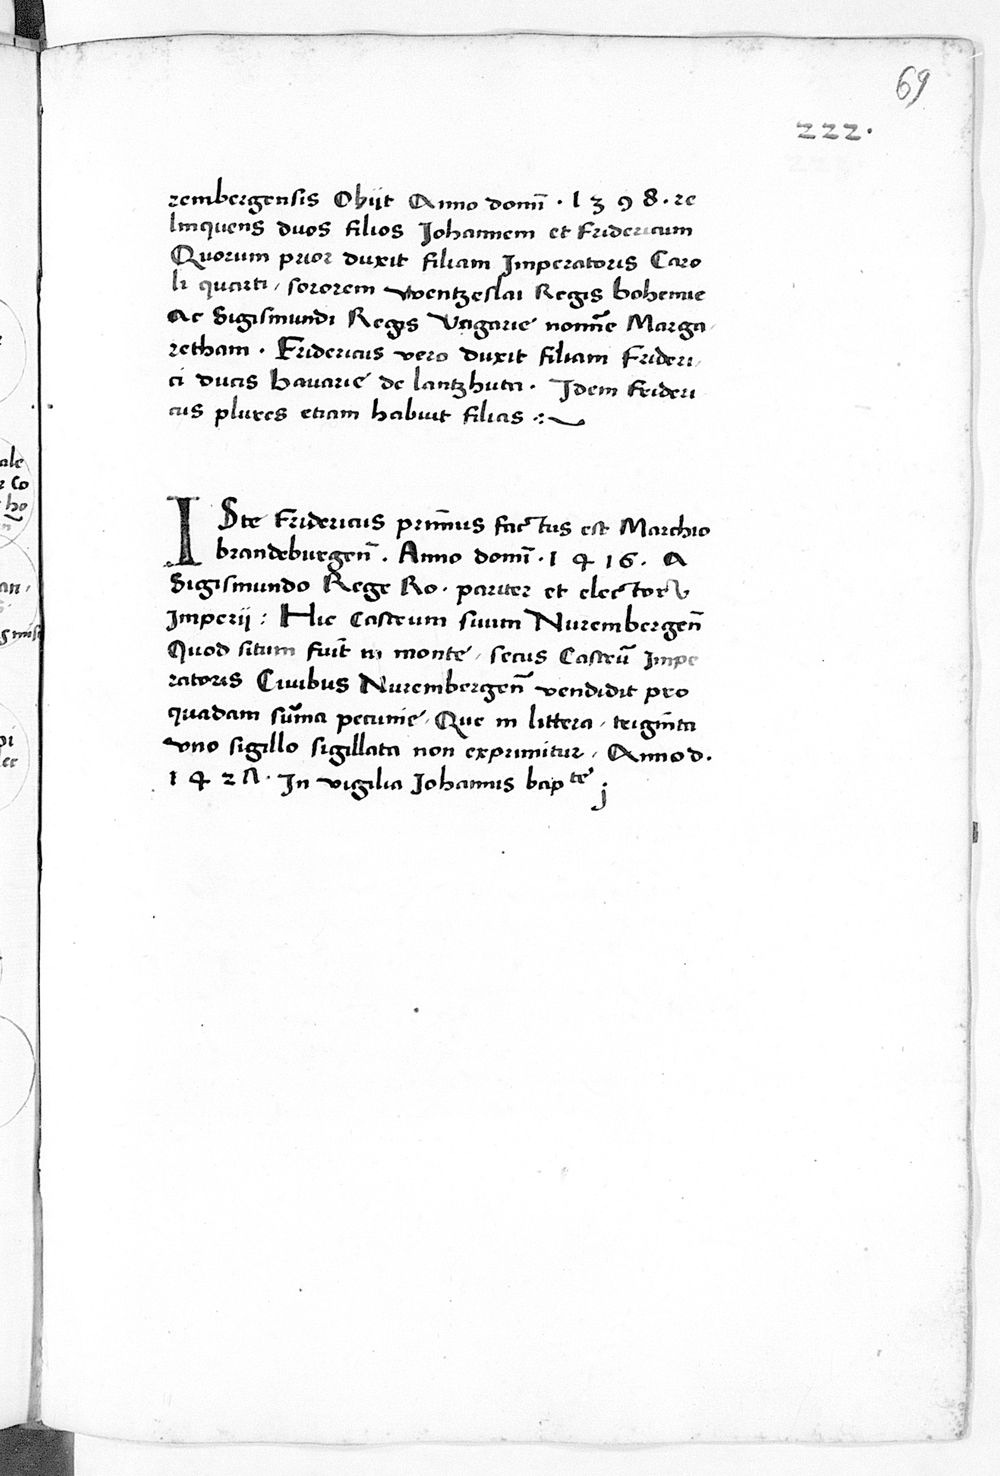 69
222.
rembergensis Obijt Anno domī · 1398 · re
linquens duos filios Johannem et Fridericum
Quorum prior duxit filiam Imperatoris Caro
li quarti, sororem wentzeslai Regis bohemie
ac Sigismundi Regis Vngarie nomīe Marga,
retham · Fridericus vero duxit filiam Frideri,
ci ducis bavarie de lantzhuta · Idem frideri
cus plures etiam habuit filias :~
ISte Fridericus primūs factus est Marchio
brandeburgen̄ · Anno domī · 1416 · A
Sigismundo Rege Ro · pariter et electorū
Imperij : Hic castrum suum Nurembergen̄
Quod situm fuīt in monte, secus Castrū Impe
ratoris Civibus Nurembergen̄ vendidit pro
quadam sūma pecunie, Que in littera, trigīnta
vno sigillo sigillata non exprimitur, Anno d.
1427 · In vigilia Johannis bapte j
ale
r co
ho
an,
gmisi
pi
ler